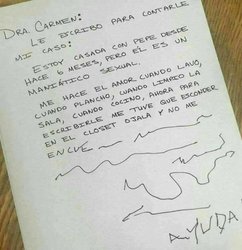 DRA. CARMEN:
LE ESCRIBO PARA CONTARLE
MI CASO:
ESTOY CASADA CON PEPE DESDE
HACE 6 MESES, PERO ÉL ES UN
MANIÁTICO SEXUAL.
ME HACE EL AMOR CUANDO LAVO,
CUANDO PLANCHO, CUANDO LIMPIO LA
SALA, CUANDO COCINO, AHORA PARA
ESCRIBIRLE ME TUVE QUE ESCONDER
EN EL CLOSET OJALA Y NO ME
ENCUE
AYUDA